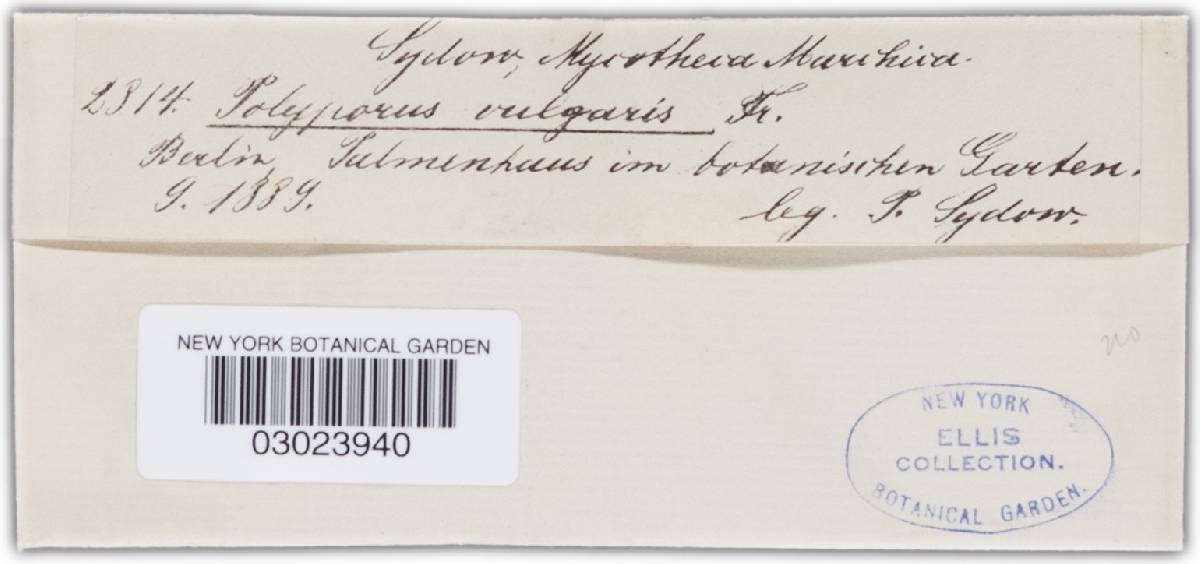 Sydow, Mycotheca Marchica.
2314. Polyporus vulgaris Fr.
Berlin, Palmenhaus im botanischen Garten.
9. 1889.
leg. P. Sydow.
NEW YORK BOTANICAL GARDEN
03023940
no
NEW YORK
ELLIS
COLLECTION.
BOTANICAL GARDEN.